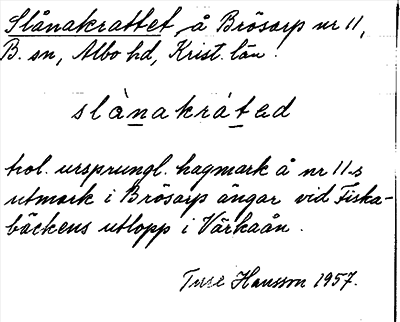 Slånakrattet, å Brösarp nr 11,
B. sn, Albo hd, Krist. län.
slànakràted
trol. ursprungl. hagmark å nr 11:s
utmark i Brösarp ängar vid Fiska-
bäckens utlopp i Värkaån.
Ture Hansson 1957.